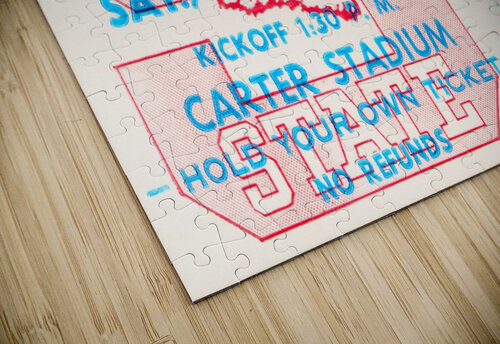 KICKOFF 1:30 P. M.
CARTER STADIUM
HOLD YOUR OWN TICKET
STATE
NO REFUNDS